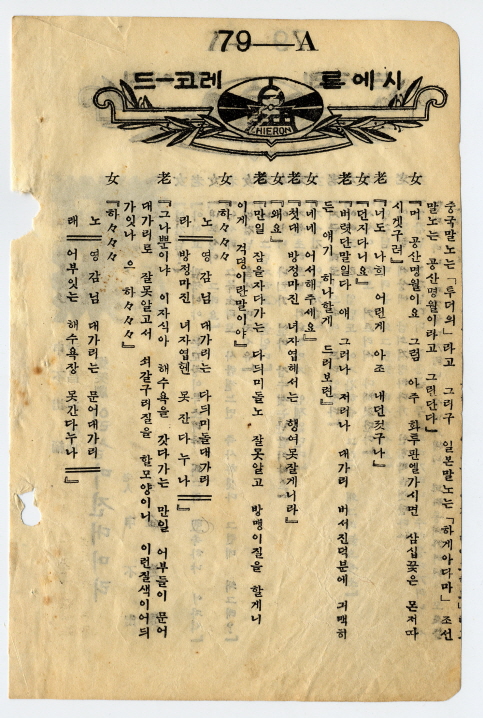 79—A
시에론 레코—드
CHIERON
중국말노는「투더의」라고 그리구 일본말노는「하게아다마」조선
말노는 공산명월이라고 그런단다」
女『머 공산명월이요 그럼 아주 화루판엘가시면 삼십꽃은 몬저따
시겟구려』
老『너도 나희 어린게 아조 내던젓구나』
女『던지다니요』
老『버릇단말일다 얘 그러나 저러나 대가리 버서진덕분에 긔맥히
든 얘기 하나할게 드러보련』
女『네네 어서해주세요』
老『첫대 방정마진 녀자엽헤서는 행여못잘게니라』
女『왜요』
老『만일 잠을자다가는 다듸미돌노 잘못알고 방맹이질을 할게니
이게 걱덩이란말이야』
女『하々々々』
노 영감님 대가리는 다듸미돌대가리
라 방정마진 녀자엽헨 못잔다누나』
老『그나뿐이냐 이자식아 해수욕을 갓다가는 만일 어부들이 문어
대가리로 잘못알고서 쇠갈구리질을 할모양이니 이런질색이어듸
가잇나 으 하々々々』
女『하々々々』
노 영감님 대가리는 문어대가리
래 어부잇는 해수욕장 못간다누나』